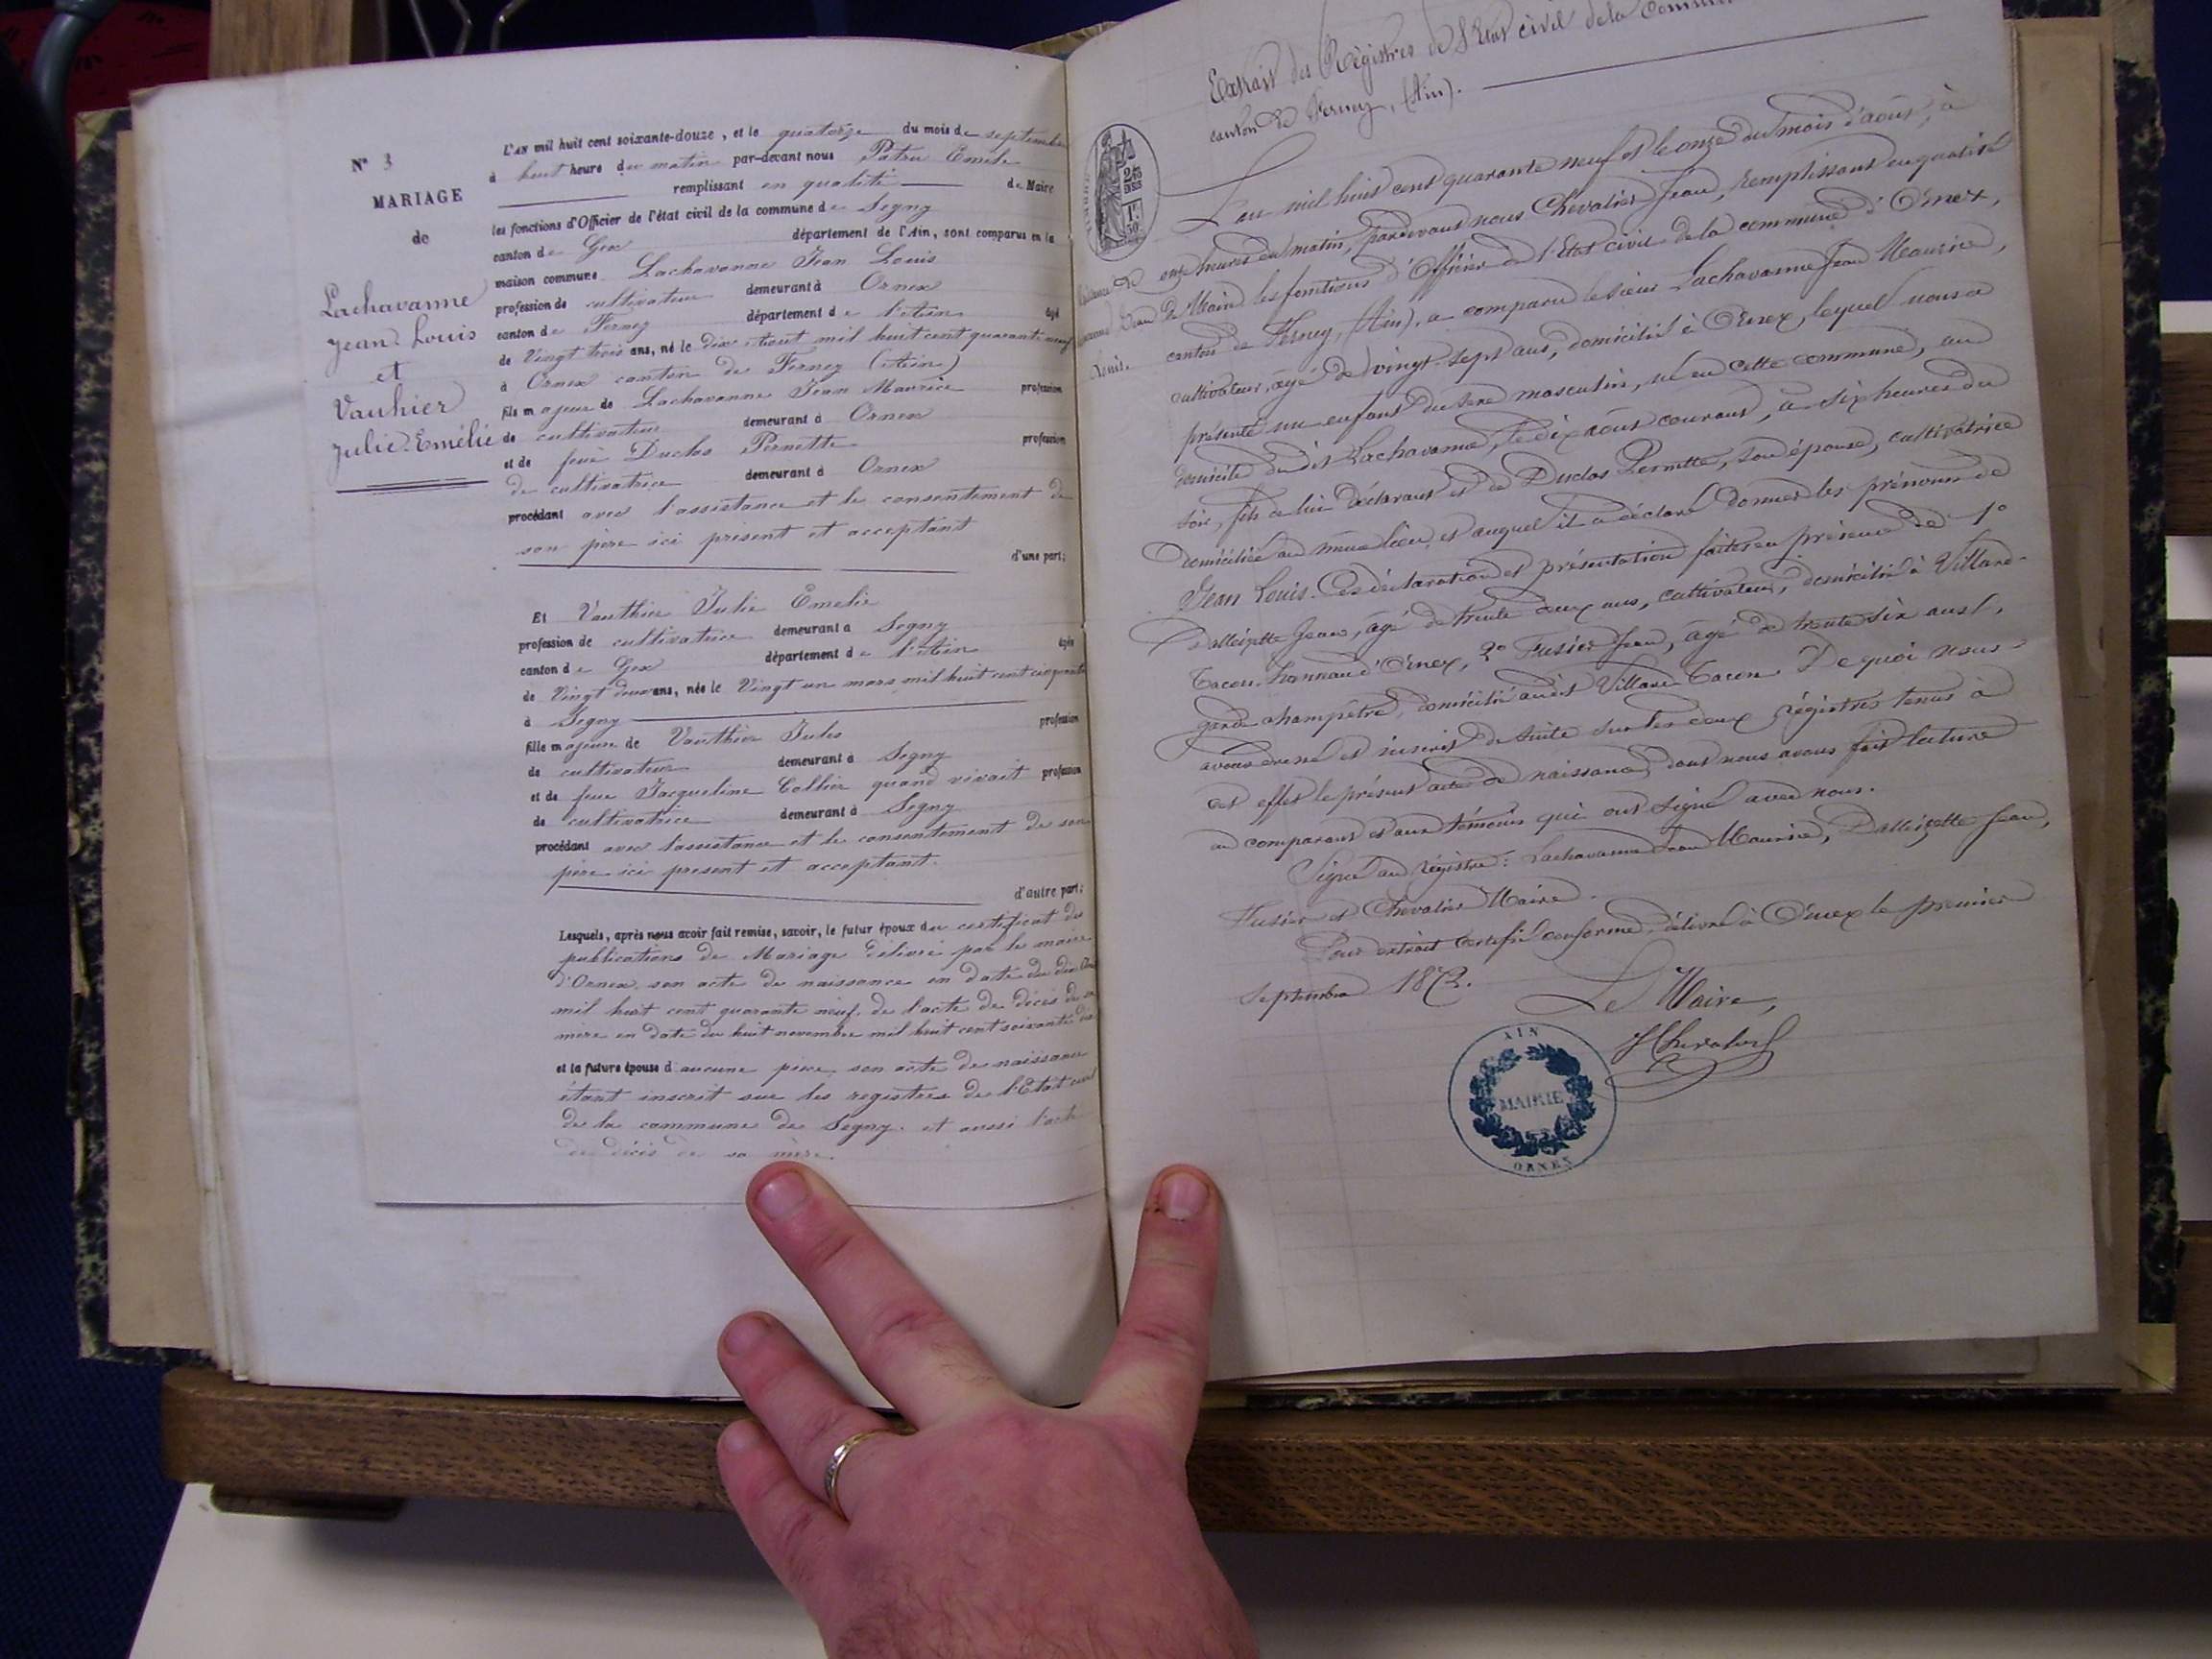 N° 3
MARIAGE
de
Lachavanne
Jean Louis
et
Vauthier
Julie Emélie
L'AN mil huit cent soixante-douze, et le quatorze du mois de septembre
à huit heure du matin par-devant nous Patru Emile
remplissant en qualité de Maire
les fonctions d'Officier de l'état civil de la commune de Segny
canton de Gex département de l'Ain, sont comparus en la
maison commune Lachavanne Jean Louis
profession de cultivateur demeurant à Ornex
canton de Ferney département de l'Ain âgé
de Vingt trois ans, né le dix Aout mil huit cent quarante neuf
à Ornex canton de Ferney (Ain)
fils majeur de Lachavanne Jean Maurice profession
de cultivateur demeurant à Ornex
et de feue Duclos Pernette profession
de cultivatrice demeurant à Ornex
procédant avec l'assistance et le consentement de
son père ici présent et acceptant
d'une part;
Et Vauthier Julie Emelie
profession de cultivatrice demeurant à Segny
canton de Gex département de l'Ain âgée
de Vingt deux ans, née le Vingt un mars mil huit cent cinquante
à Segny
fille majeure de Vauthier Jules profession
de cultivateur demeurant à Segny
et de feue Jacqueline Collier quand vivait profession
de cultivatrice demeurant à Segny
procédant avec l'assistance et le consentement de son
père ici présent et acceptant.
d'autre part;
Lesquels, après nous avoir fait remise, savoir, le futur époux du certificat des
publications de Mariage délivré par le maire
d'Ornex, son acte de naissance en date du dix Aout
mil huit cent quarante neuf, de l'acte de décès de sa
mère en date du huit novembre mil huit cent soixante
et la future épouse d'aucune pièce, son acte de naissance
étant inscrit sur les registres de l'Etat civil
de la commune de Segny. et aussi l'acte
de décès de sa mère.
Extrait des Régistres de l'Etat civil de la Commune
canton de Ferney, (Ain).
TIMBRE
1F
50
Naissance de
Lachavanne Jean
Louis.
L'an mil huit cent quarante neuf et le onze du mois d'août, à
onze heures du matin, pardevant nous Chevalier Jean, remplissant en qualité
de Maire les fonctions d'Officier de l'Etat civil de la commune d'Ornex,
canton de Ferney, (Ain), a comparu le sieur Lachavanne Jean Maurice,
cultivateur, âgé de vingt-sept ans, domicilié à Ornex, lequel nous a
présenté un enfant du sexe masculin, né en cette commune, au
domicile du dit Lachavanne, le dix août courant, à six heures du
soir, fils de lui déclarant et de Duclos Pernette, son épouse, cultivatrice
domiciliée au même lieu, et auquel il a déclaré donner les prénoms de
Jean Louis. Ces déclaration et présentation faites en présence de 1°
Dalleizette Jean, âgé de trente deux ans, cultivateur, domicilié à Villard-
Tacon, hameau d'Ornex, 2° Fusier Jean, âgé de trente six ans,
garde champêtre, domicilié audit Villard Tacon. De quoi nous
avons dressé et inscrit de suite sur les deux régistres tenus à
cet effet le présent acte de naissance, dont nous avons fait lecture
au comparant et aux témoins qui ont signé avec nous.
Signé au régistre: Lachavanne Jean Maurice, Dalleizette Jean,
Fusier et Chevalier Maire.
Pour extrait certifié conforme, délivré à Ornex le premier
Septembre 1872.
Le Maire,
J Chevalier
AIN
MAIRIE
ORNEX